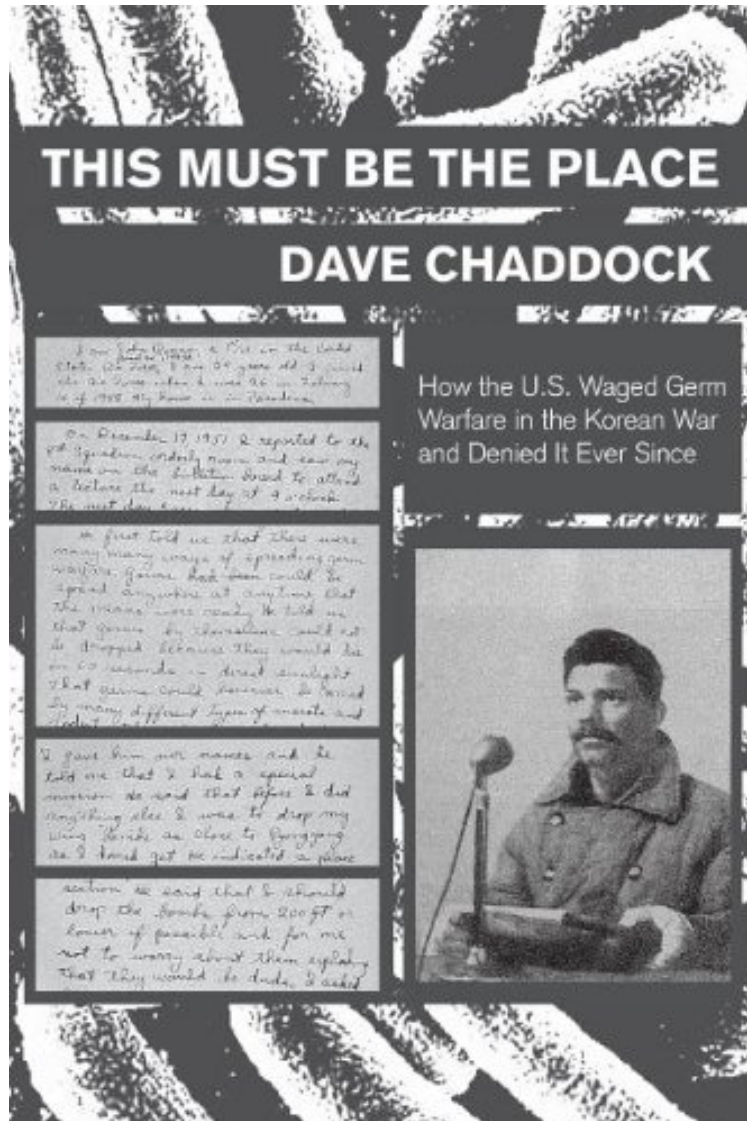 THIS MUST BE THE PLACE
DAVE CHADDOCK
How the U.S. Waged Germ
Warfare in the Korean War
and Denied It Ever Since
I am John Quinn, a 1/Lt in the United
States Air Force, I am 29 years old. I joined
the Air Force when I was
of My home is in Pasadena
On December 17, 1951 I reported to the
8th Squadron orderly room and saw my
name on the bulletin board to attend
a lecture the next day at 9 o'clock.
The next day
He first told us that there were
many many ways of spreading germ
warfare, germs had been could be
spread anywhere at anytime that
the means were ready He told us
that germs by themselves could not
be dropped because they would die
in 60 seconds in direct sunlight
That germs could however be carried
by many different types of insects and
I gave him our names and he
told me that I had a special
mission He said that before I did
anything else I was to drop my
wing bombs as close to Pyongyang
as I could get He indicated a place
section he said that I should
drop the bombs from 200 ft or
lower if possible and for me
not to worry about them
that they would be duds, I asked